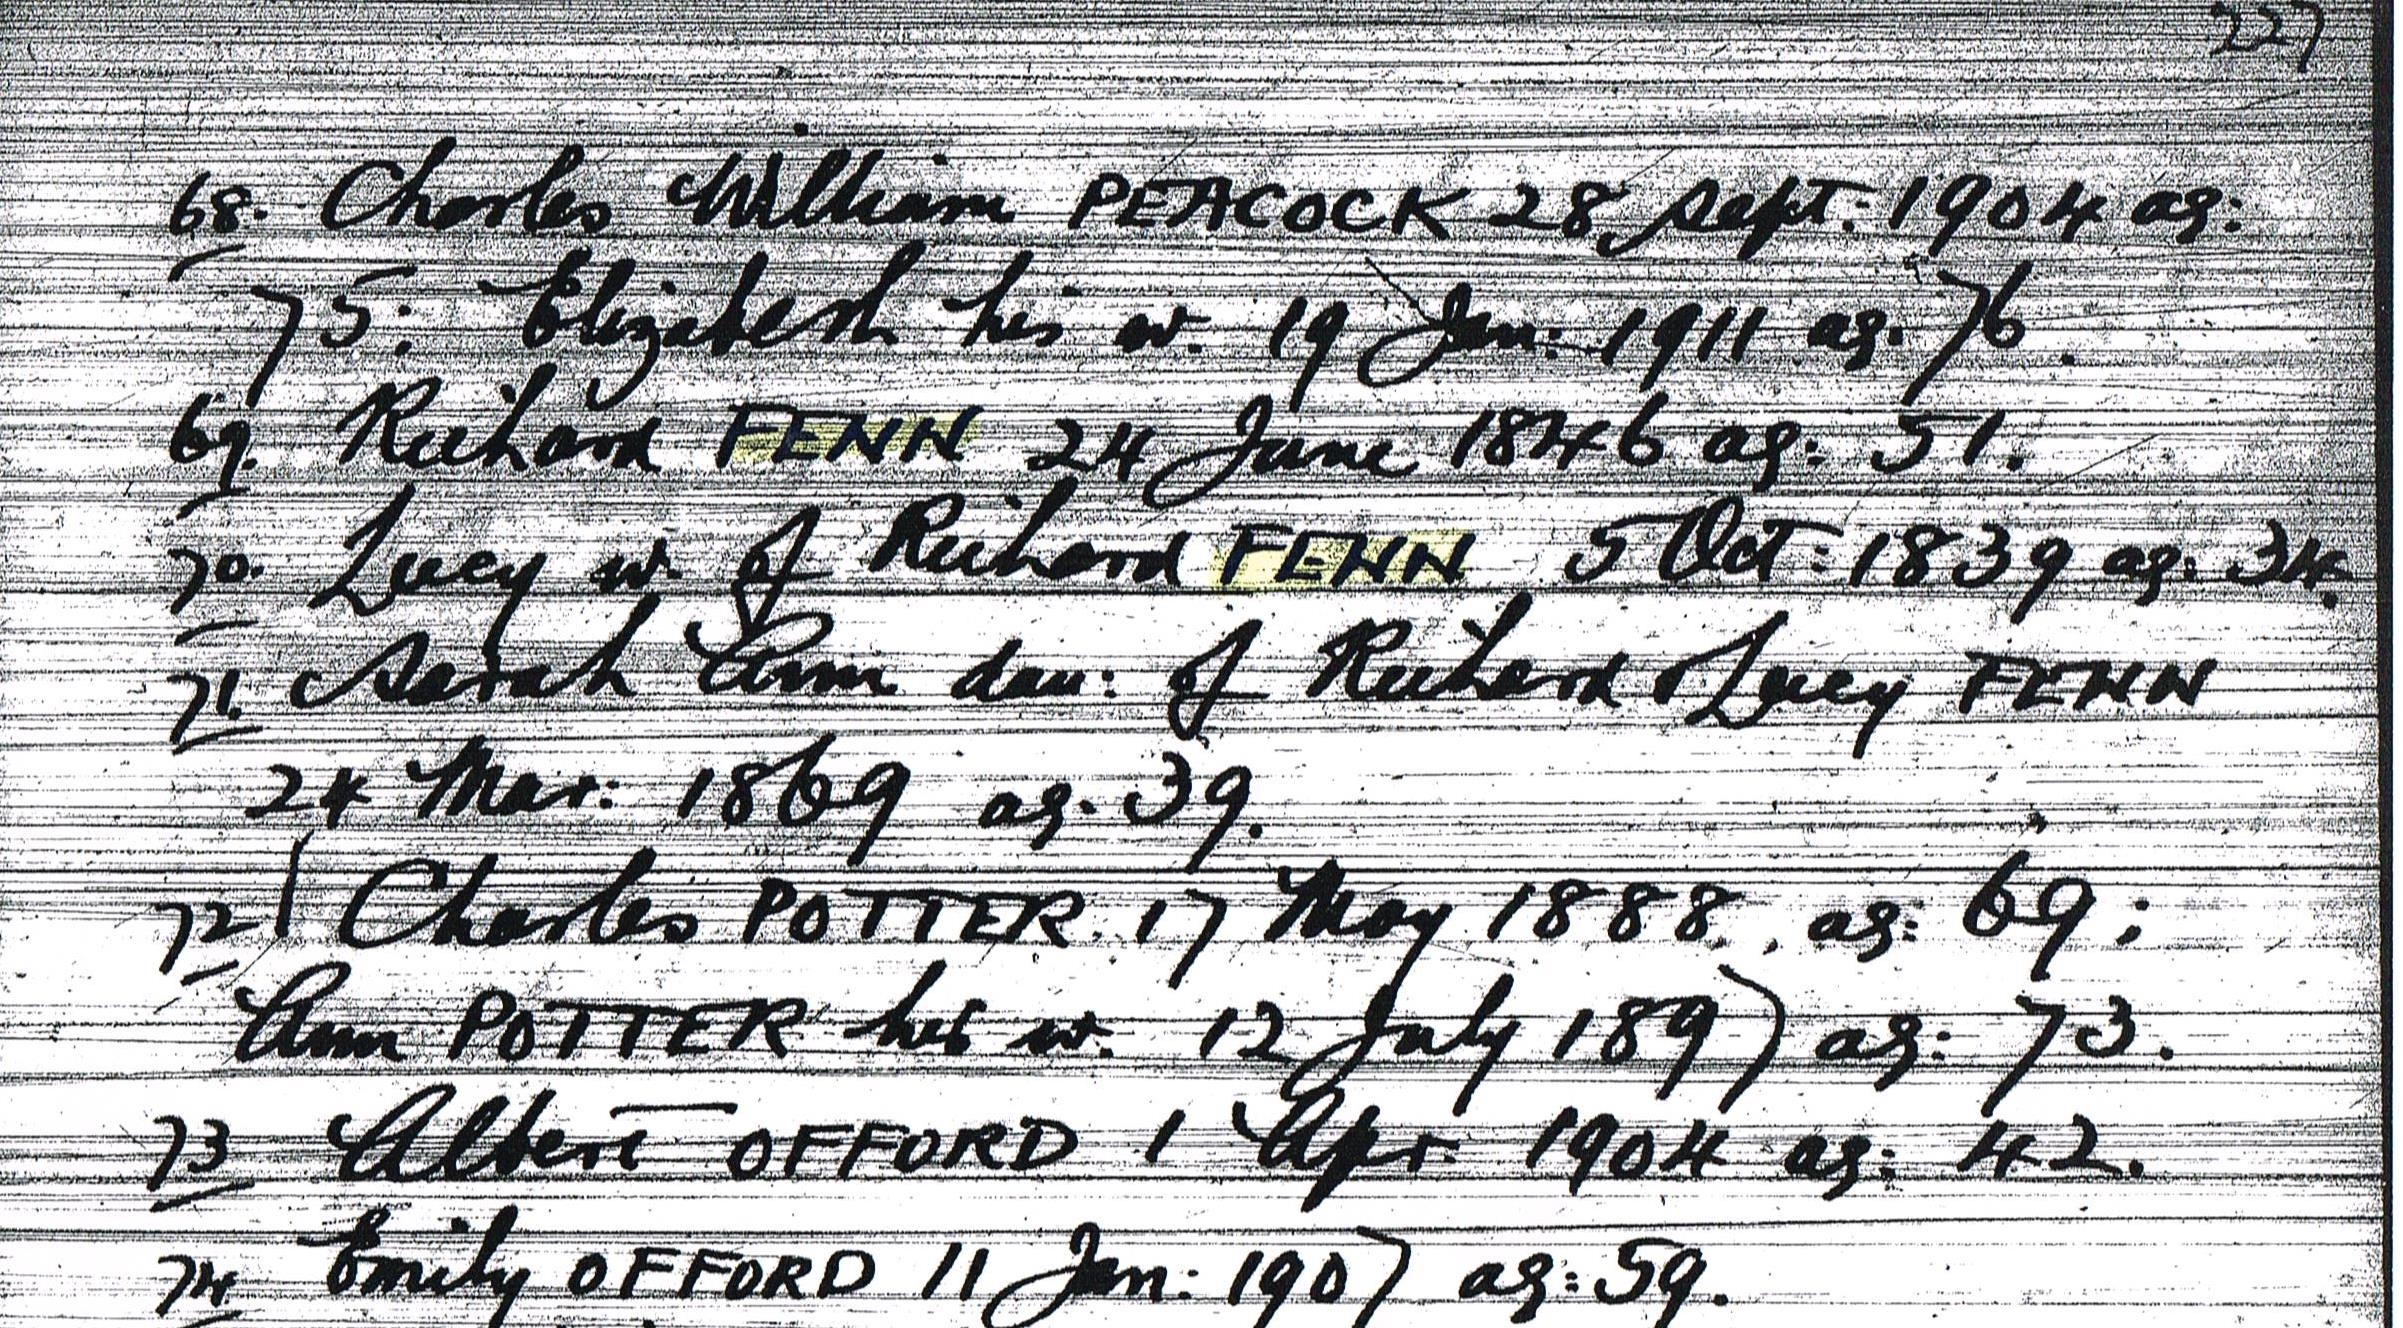 227
68. Charles William PEACOCK 28 Sept: 1904 ag:
75: Elizabeth his w. 19 Jan: 1911 ag: 76.
69. Richard FENN 24 June 1846 ag: 51.
70. Lucy w. of Richard FENN 5 Oct: 1839 ag: 34.
71. Sarah Ann dau: of Richard & Lucy FENN
24 Mar: 1869 ag. 39.
72 Charles POTTER 17 May 1888 ag: 69;
Ann POTTER his w. 12 July 1897 ag: 73.
73 Albert OFFORD 1 Apr: 1904 ag: 42.
74. Emily OFFORD 11 Jan: 1907 ag: 59.